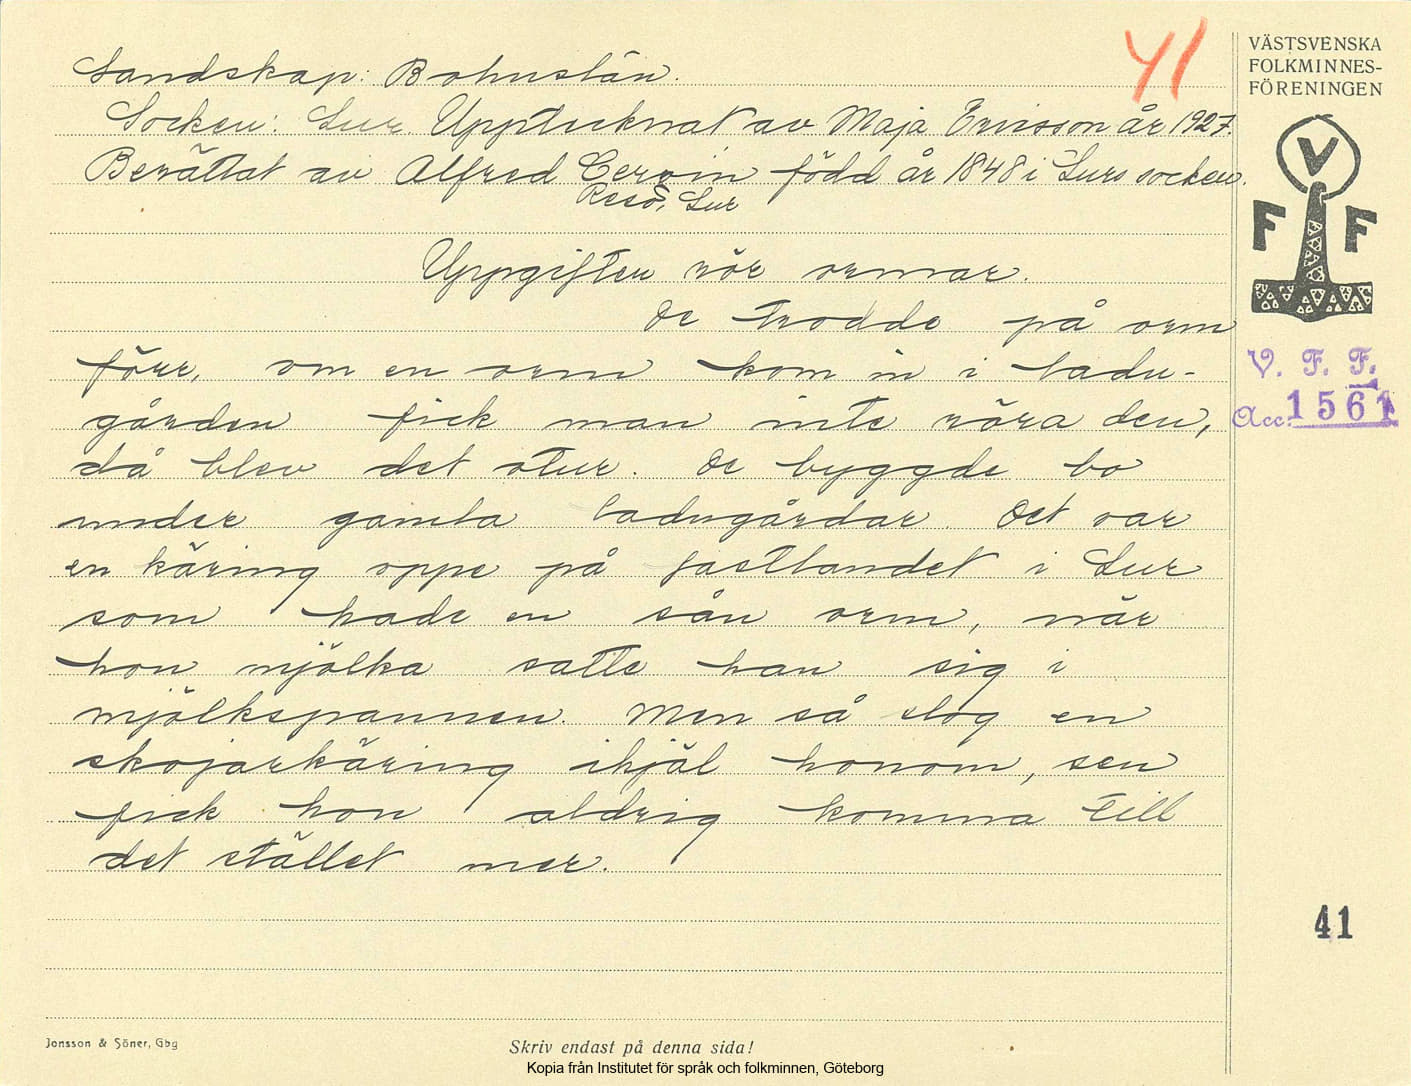 41
VÄSTSVENSKA
FOLKMINNES-
FÖRENINGEN
Landskap: Bohuslän.
Socken: Lur. Upptecknat av Maja Ericsson år 1927.
Berättat av Alfred Cervin född år 1848 i Lurs socken.
Resö, Lur
V
F F
Uppgiften rör ormar.
De trodde på orm
förr, om en orm kom in i ladu-
gården fick man inte röra den,
då blev det otur. De byggde bo
under gamla ladugårdar. Det var
en käring oppe på fastlandet i Lur
som hade en sån orm, när
hon mjölka satte han sig i
mjölkspannen. Men så slog en
skojarkäring ihjäl honom, sen
fick hon aldrig komma till
det stället mer.
V. F. F.
Acc: 1561
41
Jonsson & Söner, Gbg
Skriv endast på denna sida!
Kopia från Institutet för språk och folkminnen, Göteborg